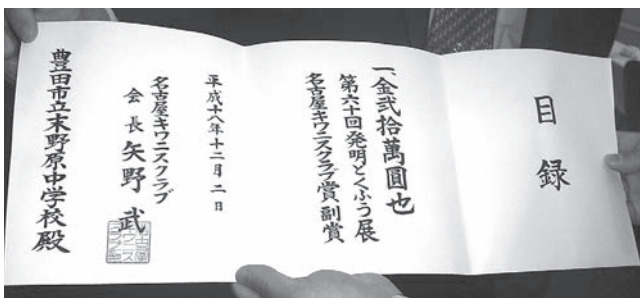 目録
一、金弐拾萬圓也
第六十回発明とくふう展
名古屋キワニスクラブ賞副賞
平成十八年十二月二日
名古屋キワニスクラブ
会長矢野武
豊田市立末野原中学校殿